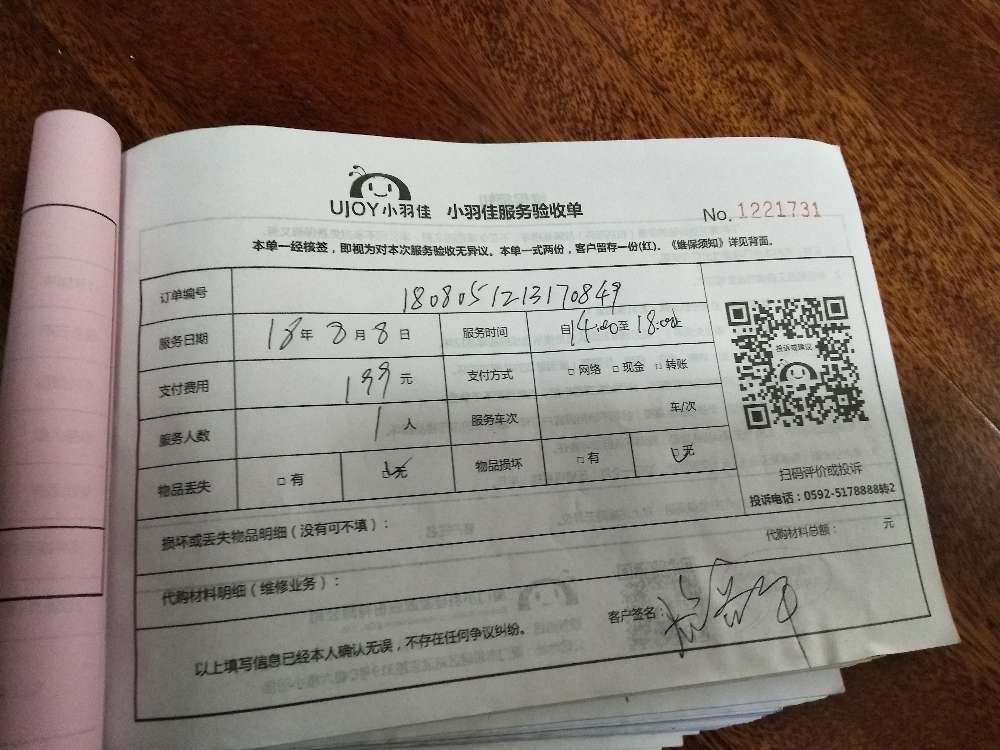 UJOY小羽佳 小羽佳服务验收单 No. 1221731
本单一经核签，即视为对本次服务验收无异议。本单一式两份，客户留存一份(红)。《维保须知》详见背面。
订单编号 1808051213170849
服务日期 18年8月8日 服务时间 自14:00至18:00止
支付费用 199元 支付方式 □网络 □现金 □转账
服务人数 1人 服务车次 车/次
物品丢失 □有 □无 物品损坏 □有 □无
投诉或建议
扫码评价或投诉
投诉电话：0592-5178888转2
损坏或丢失物品明细（没有可不填）：
代购材料明细（维修业务）： 代购材料总额： 元
以上填写信息已经本人确认无误，不存在任何争议纠纷。 客户签名：